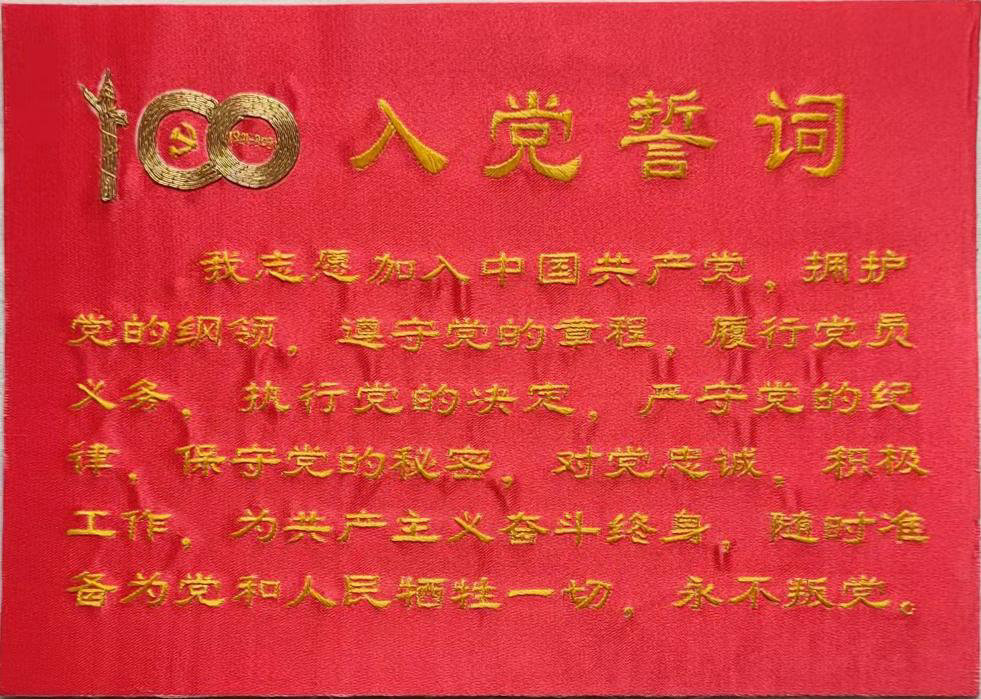 100 入党誓词
我志愿加入中国共产党，拥护
党的纲领，遵守党的章程，履行党员
义务，执行党的决定，严守党的纪
律，保守党的秘密，对党忠诚，积极
工作，为共产主义奋斗终身，随时准
备为党和人民牺牲一切，永不叛党。